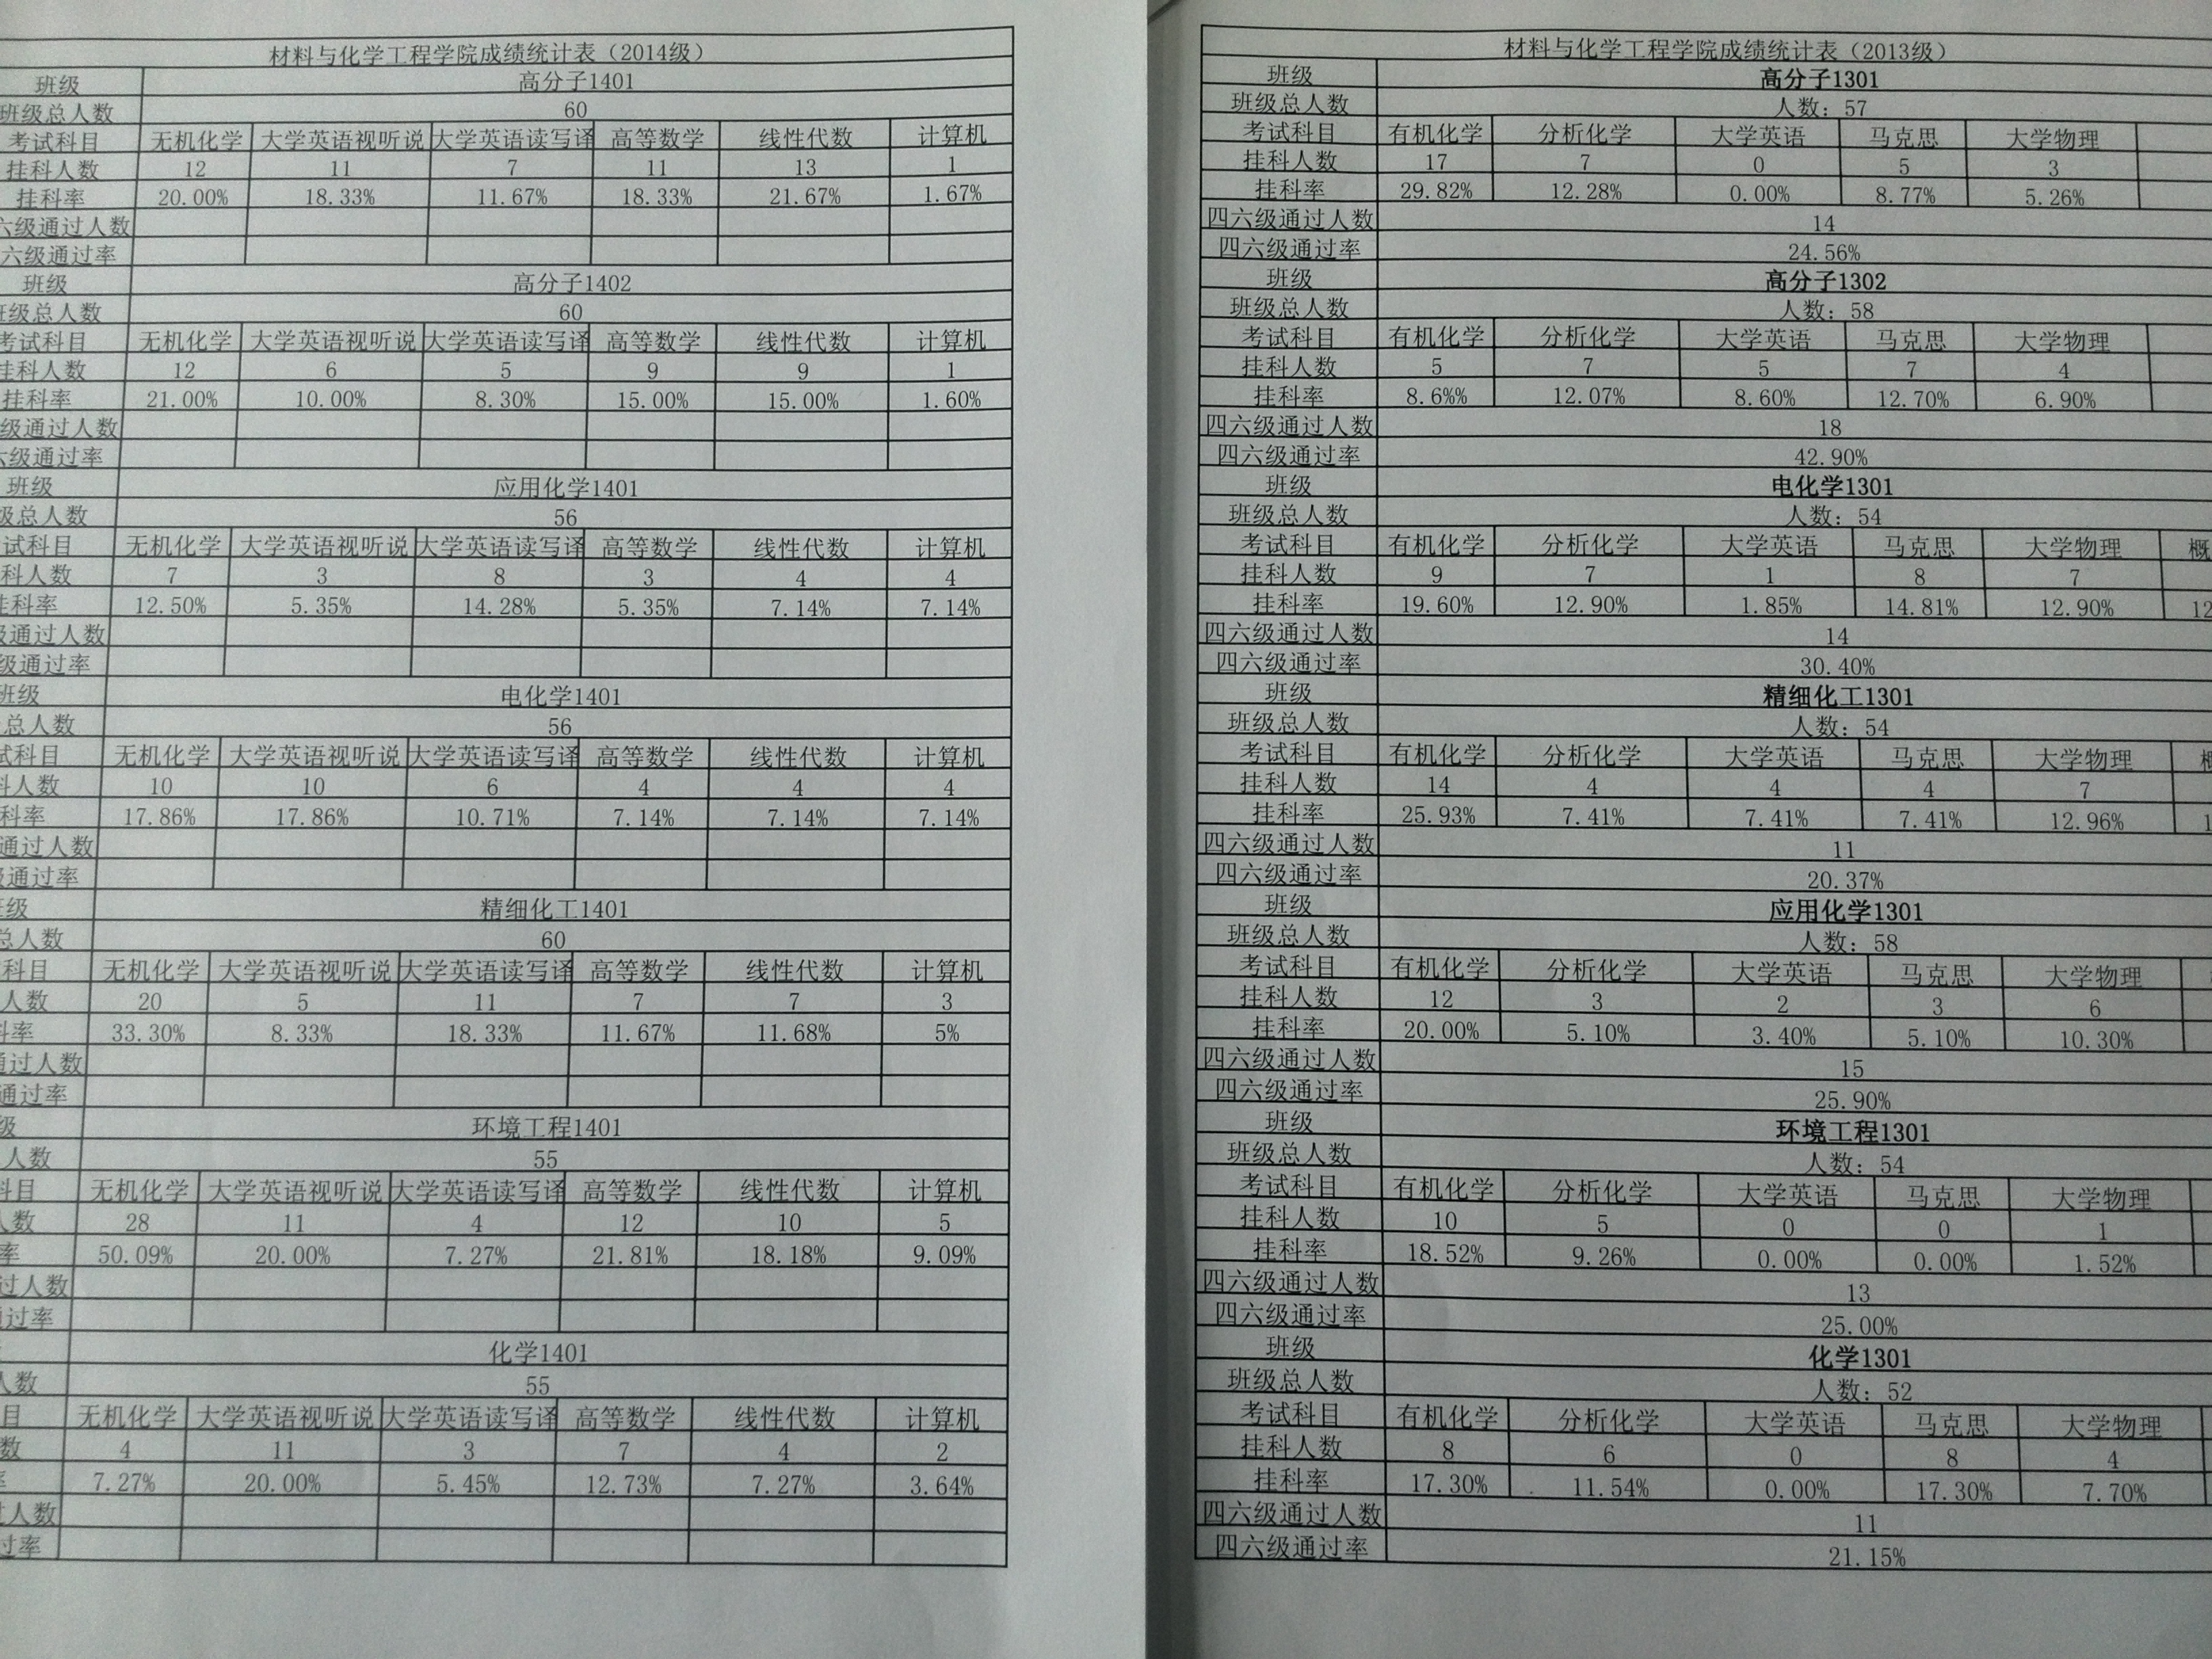 材料与化学工程学院成绩统计表（2014级）
班级 高分子1401
班级总人数 60
考试科目 无机化学 大学英语视听说 大学英语读写译 高等数学 线性代数 计算机
挂科人数 12 11 7 11 13 1
挂科率 20.00% 18.33% 11.67% 18.33% 21.67% 1.67%
六级通过人数
六级通过率
班级 高分子1402
班级总人数 60
考试科目 无机化学 大学英语视听说 大学英语读写译 高等数学 线性代数 计算机
挂科人数 12 6 5 9 9 1
挂科率 21.00% 10.00% 8.30% 15.00% 15.00% 1.60%
级通过人数
六级通过率
班级 应用化学1401
级总人数 56
试科目 无机化学 大学英语视听说 大学英语读写译 高等数学 线性代数 计算机
科人数 7 3 8 3 4 4
挂科率 12.50% 5.35% 14.28% 5.35% 7.14% 7.14%
级通过人数
级通过率
班级 电化学1401
总人数 56
试科目 无机化学 大学英语视听说 大学英语读写译 高等数学 线性代数 计算机
科人数 10 10 6 4 4 4
科率 17.86% 17.86% 10.71% 7.14% 7.14% 7.14%
通过人数
级通过率
班级 精细化工1401
总人数 60
科目 无机化学 大学英语视听说 大学英语读写译 高等数学 线性代数 计算机
人数 20 5 11 7 7 3
科率 33.30% 8.33% 18.33% 11.67% 11.68% 5%
通过人数
通过率
级 环境工程1401
人数 55
科目 无机化学 大学英语视听说 大学英语读写译 高等数学 线性代数 计算机
人数 28 11 4 12 10 5
率 50.09% 20.00% 7.27% 21.81% 18.18% 9.09%
过人数
通过率
化学1401
人数 55
目 无机化学 大学英语视听说 大学英语读写译 高等数学 线性代数 计算机
数 4 11 3 7 4 2
率 7.27% 20.00% 5.45% 12.73% 7.27% 3.64%
过人数
过率
材料与化学工程学院成绩统计表（2013级）
班级 高分子1301
班级总人数 人数：57
考试科目 有机化学 分析化学 大学英语 马克思 大学物理
挂科人数 17 7 0 5 3
挂科率 29.82% 12.28% 0.00% 8.77% 5.26%
四六级通过人数 14
四六级通过率 24.56%
班级 高分子1302
班级总人数 人数：58
考试科目 有机化学 分析化学 大学英语 马克思 大学物理
挂科人数 5 7 5 7 4
挂科率 8.6%% 12.07% 8.60% 12.70% 6.90%
四六级通过人数 18
四六级通过率 42.90%
班级 电化学1301
班级总人数 人数：54
考试科目 有机化学 分析化学 大学英语 马克思 大学物理 概
挂科人数 9 7 1 8 7
挂科率 19.60% 12.90% 1.85% 14.81% 12.90% 12
四六级通过人数 14
四六级通过率 30.40%
班级 精细化工1301
班级总人数 人数：54
考试科目 有机化学 分析化学 大学英语 马克思 大学物理
挂科人数 14 4 4 4 7
挂科率 25.93% 7.41% 7.41% 7.41% 12.96% 1
四六级通过人数 11
四六级通过率 20.37%
班级 应用化学1301
班级总人数 人数：58
考试科目 有机化学 分析化学 大学英语 马克思 大学物理
挂科人数 12 3 2 3 6
挂科率 20.00% 5.10% 3.40% 5.10% 10.30%
四六级通过人数 15
四六级通过率 25.90%
班级 环境工程1301
班级总人数 人数：54
考试科目 有机化学 分析化学 大学英语 马克思 大学物理
挂科人数 10 5 0 0 1
挂科率 18.52% 9.26% 0.00% 0.00% 1.52%
四六级通过人数 13
四六级通过率 25.00%
班级 化学1301
班级总人数 人数：52
考试科目 有机化学 分析化学 大学英语 马克思 大学物理
挂科人数 8 6 0 8 4
挂科率 17.30% 11.54% 0.00% 17.30% 7.70%
四六级通过人数 11
四六级通过率 21.15%